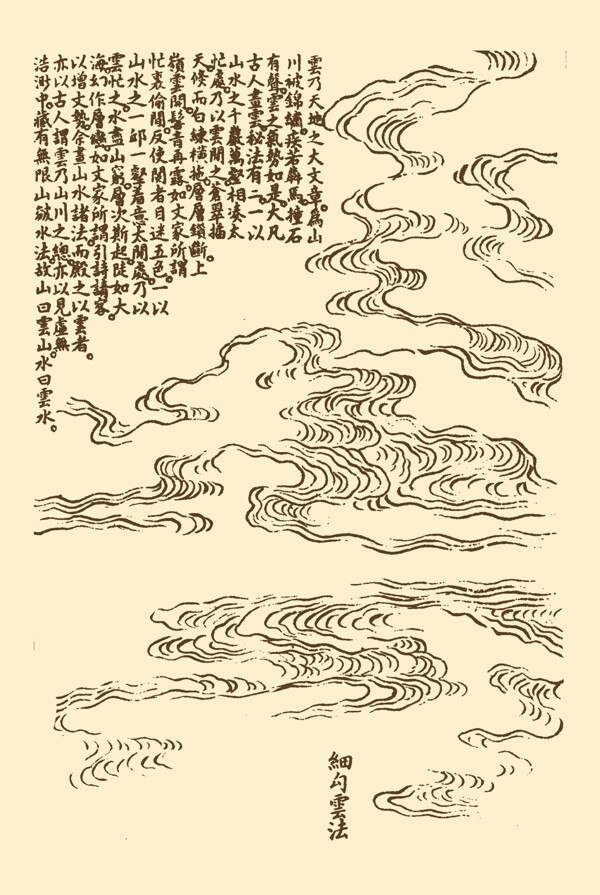 雲乃天地之大文章。為山
川被錦繡。疾若奔馬。撞石
有聲。雲之氣勢如是。大凡
古人畫雲秘法有二。一以
山水之千巖萬壑相湊太
忙處。乃以雲閒之。蒼翠插
天。倏而白練橫拖。層層鎖斷。上
嶺雲開。髻青再露。如文家所謂
忙裏偷閒。反使閱者目迷五色。一以
山水之一邱一壑著意太閒處。乃以
雲忙之。水盡山窮。層次斯起。陡如大
海。幻作層巒。如文家所謂引詩請客。
以增文勢。余畫山水諸法。而殿之以雲者。
亦以古人謂雲乃山川之總。亦以見虛無
浩渺中。藏有無限山皴水法。故山曰雲山。水曰雲水。
細勾雲法